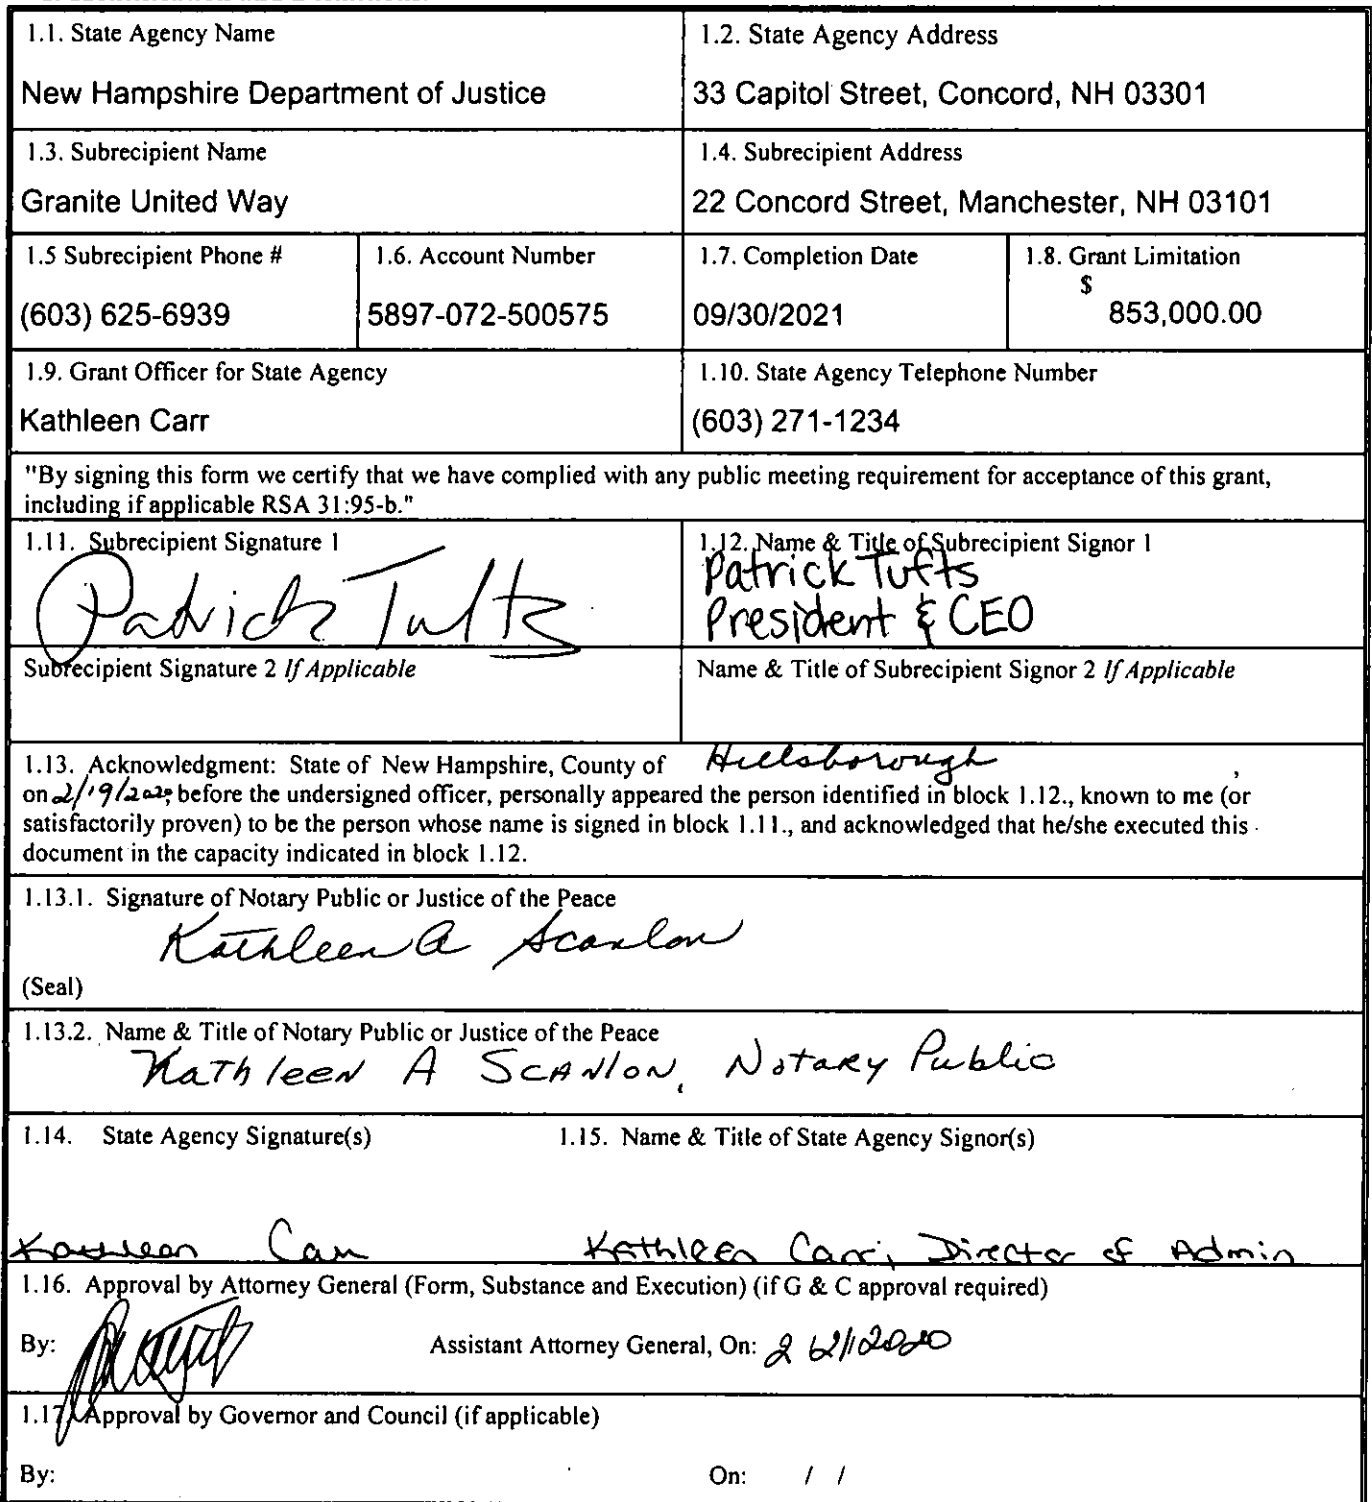 1.1. State Agency Name
1.2. State Agency Address
New Hampshire Department of Justice
33 Capitol Street, Concord, NH 03301
1.3. Subrecipient Name
1.4. Subrecipient Address
Granite United Way
22 Concord Street, Manchester, NH 03101
1.5 Subrecipient Phone #
1.6. Account Number
1.7. Completion Date
1.8. Grant Limitation
$
(603) 625-6939
5897-072-500575
09/30/2021
853,000.00
1.9. Grant Officer for State Agency
1.10. State Agency Telephone Number
Kathleen Carr
(603) 271-1234
"By signing this form we certify that we have complied with any public meeting requirement for acceptance of this grant,
including if applicable RSA 31:95-b."
1.11. Subrecipient Signature 1
1.12. Name & Title of Subrecipient Signor 1
Patrick Tufts
Patrick Tufts
President & CEO
Subrecipient Signature 2 If Applicable
Name & Title of Subrecipient Signor 2 If Applicable
1.13. Acknowledgment: State of New Hampshire, County of Hillsborough ,
on 2/19/2020, before the undersigned officer, personally appeared the person identified in block 1.12., known to me (or
satisfactorily proven) to be the person whose name is signed in block 1.11., and acknowledged that he/she executed this
document in the capacity indicated in block 1.12.
1.13.1. Signature of Notary Public or Justice of the Peace
Kathleen A Scanlon
(Seal)
1.13.2. Name & Title of Notary Public or Justice of the Peace
Kathleen A Scanlon, Notary Public
1.14. State Agency Signature(s)
1.15. Name & Title of State Agency Signor(s)
Kathleen Carr
Kathleen Carr, Director of Admin
1.16. Approval by Attorney General (Form, Substance and Execution) (if G & C approval required)
By:
Assistant Attorney General, On: 2/21/2020
1.17. Approval by Governor and Council (if applicable)
By:
On: / /